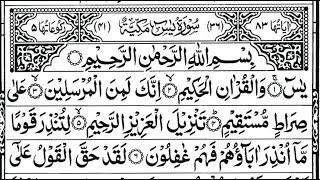 اٰيَاتُهَا ٨٣ (٣٦) سُوْرَةُ يٰسٓ مَكِّيَّةٌ (٤١) رُكُوْعَاتُهَا ٥
بِسْمِ اللّٰهِ الرَّحْمٰنِ الرَّحِيْمِ
يٰسٓ ۚ‏﴿١﴾ وَالْقُرْاٰنِ الْحَكِيْمِ ۙ‏﴿٢﴾ اِنَّكَ لَمِنَ الْمُرْسَلِيْنَ ۙ‏﴿٣﴾ عَلٰى
صِرَاطٍ مُّسْتَقِيْمٍ ؕ‏﴿٤﴾ تَنْزِيْلَ الْعَزِيْزِ الرَّحِيْمِ ۙ‏﴿٥﴾ لِتُنْذِرَ قَوْمًا
مَّاۤ اُنْذِرَ اٰبَآؤُهُمْ فَهُمْ غٰفِلُوْنَ ‏﴿٦﴾ لَقَدْ حَقَّ الْقَوْلُ عَلٰٓى